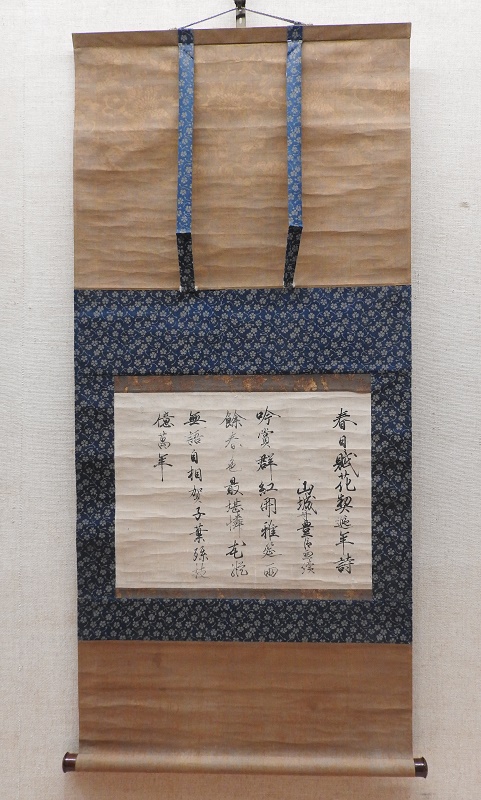 春日賦花契遐年詩
山城守豊臣
吟賞群紅開雅筵雨
餘春色最堪憐花
無語自相賀子葉孫枝
億萬年